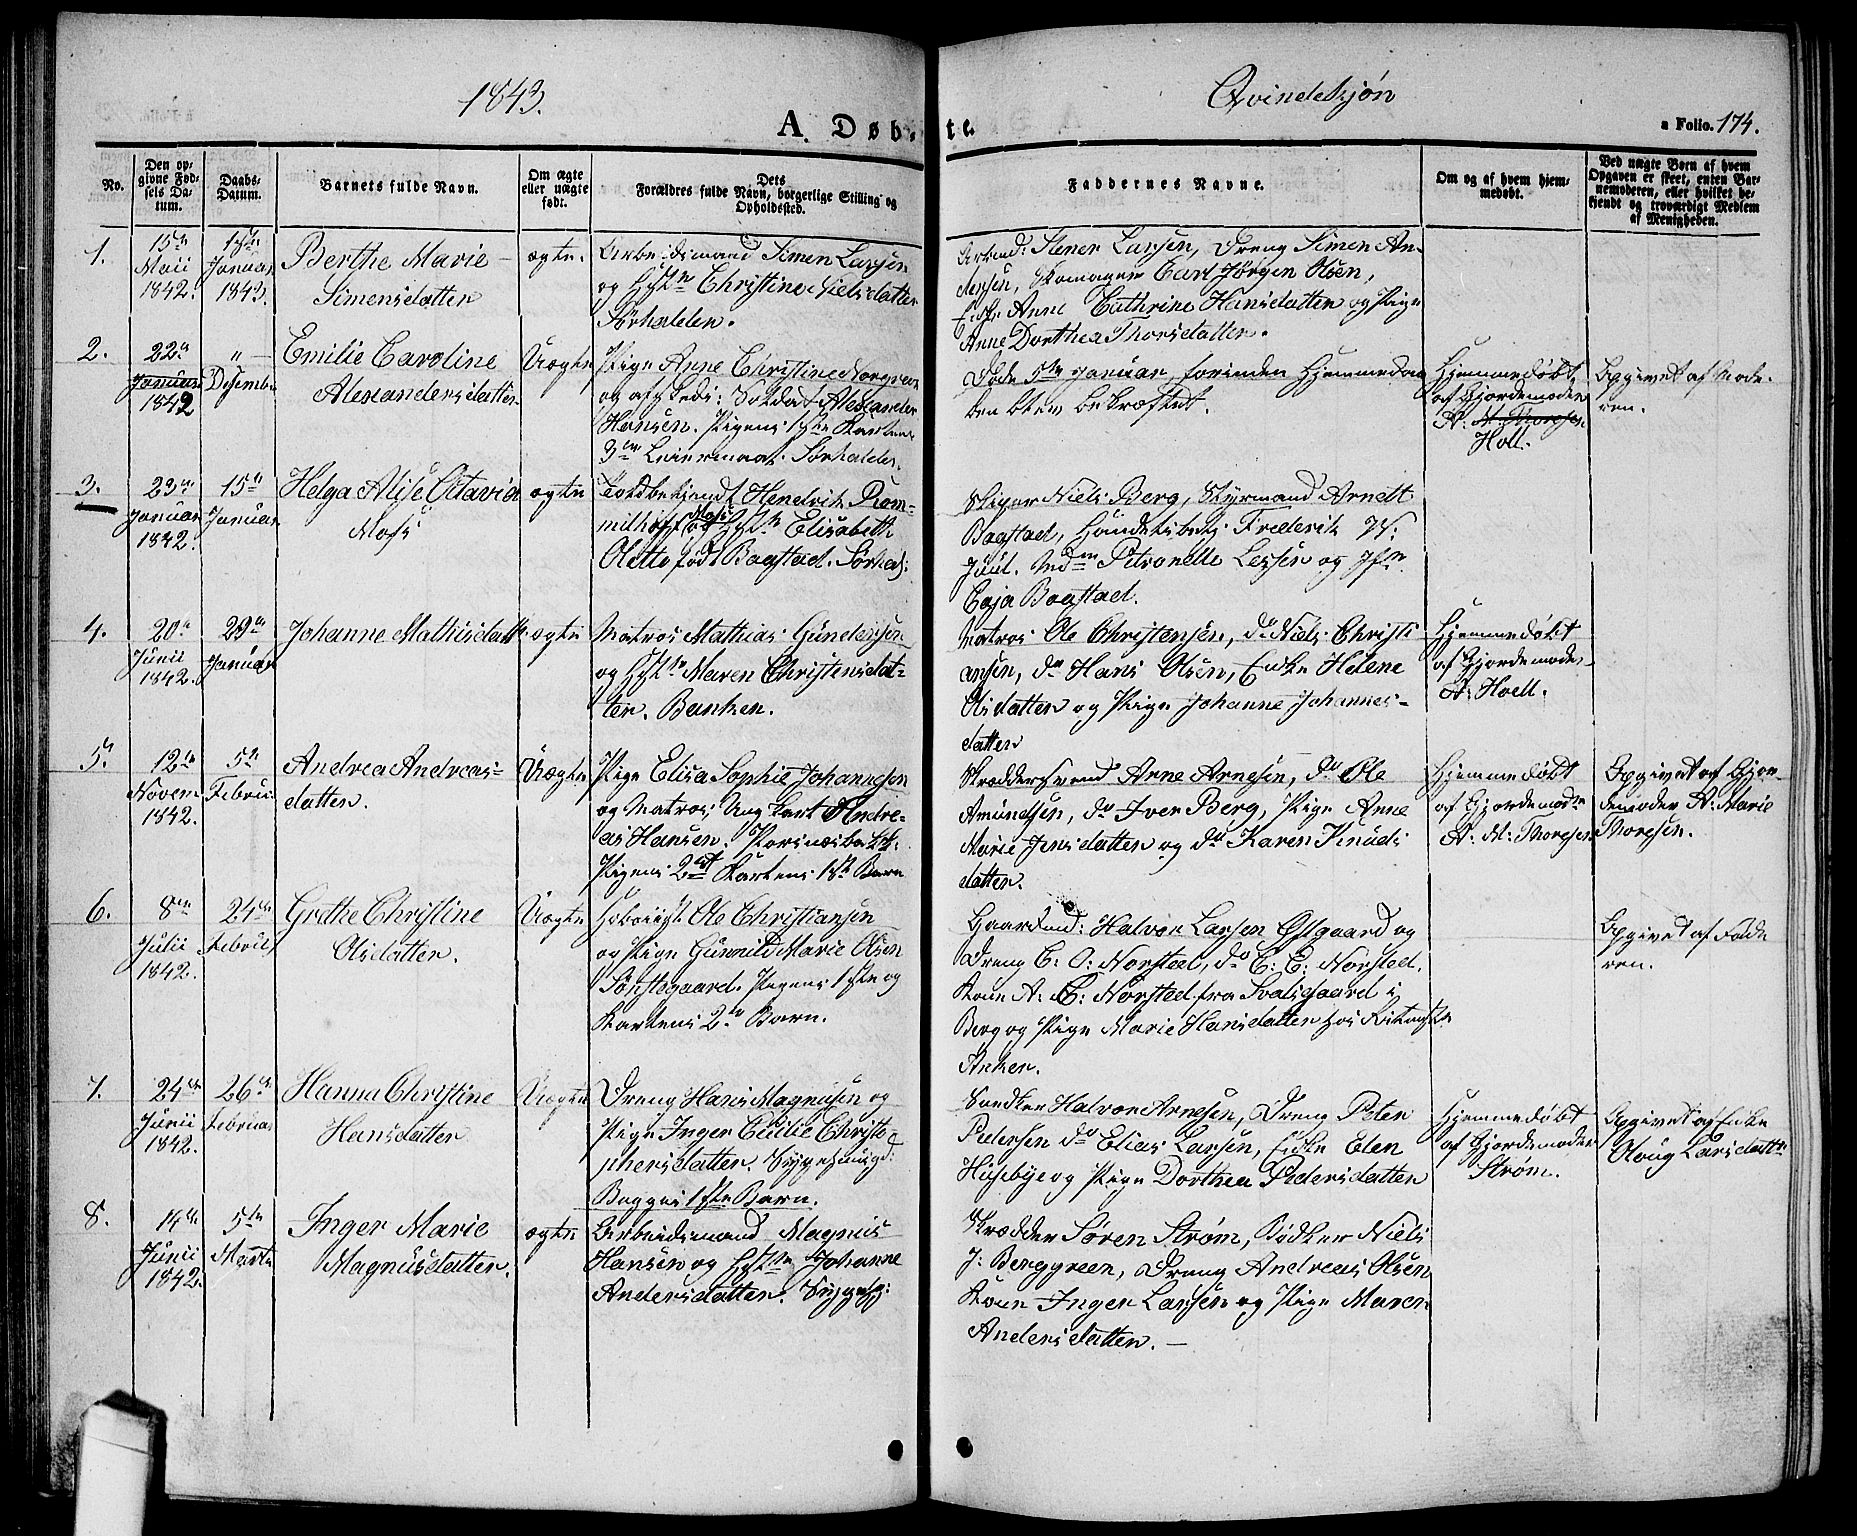 1843.
Qvindekjøn
A. Døb-
te.
a Folio. 174.
No.
Den op-
givne Fød-
sels Da-
tum.
Daabs-
Datum.
Barnets fulde Navn.
Om ægte
eller uægte
født.
Dets
Forældres fulde Navn, borgerlige Stilling og
Opholdssted.
Faddernes Navne.
Om og af hvem hjem-
medøbt.
Ved uægte Børn af hvem
Opgaven er skeet, enten Bar-
nemoderen, eller hvilket be-
kjendt og troværdigt Medlem
af Menigheden.
1.
15de
Maii
1842.
Januar
1843.
Berthe Marie
Simensdatter
ægte.
Arbeidsmand Simen Larsen
og Hst: Christine Nielsdatter
Sørhalden.
Arbmd: Stener Larsen, Dreng Simen An-
dersen, Skomager Carl Jørgen Olsen,
Enke Anne Cathrine Hansdatter og Pige
Anne Dorthea Thorsdatter.
2.
22de
Januar
1842
"
Desember
Emilie Caroline
Alexandersdatter
Uægte
Pige Anne Christine Norgreen
og afskeds: Soldat Alexander
Hansen. Pigens 1ste Karlens
3die Leiermaal. Sørhalden.
Døde 5te Januar forinden Hjemmedaa-
ben blev bekræftet.
Hjemmedøbt
af Gjordemoder
A: M: Thoresen
Holl.
Opgivet af Mode-
ren.
3.
23de
Januar
1842.
15de
Januar
Helga Alise Octavia
Moss
ægte
Toldbetjendt Hendrik Rom-
milhoff Moss og Hst: Elisabeth
Olette født Bagstad. Sørhed:
Skiper Niels Berg, Styrmand Arnett
Bagstad, Handelsbetj: Frederik
Juul. Mdm Petronelle Lessen og Jfr
Caja Bagstad.
4.
20de
Junii
1842.
29de
Januar
Johanne Mathisdatter
ægte
Matros Mathias Gundersen
og Hst: Maren Christensdat-
ter. Banken.
Matros Ole Christensen, do Niels Christi
ansen, do Hans Olsen, Enke Helene
Olsdatter og Pige Johanne Johannes-
datter
Hjemmedøbt
af Gjordemoder
A: Holl.
5.
12te
Novem
1842.
5te
Februar
Andrea Andreas-
datter.
Uægte
Pige Elisa Sophie Johannesen
og Matros Ung Karl Andre-
as Hansen. Porsnæsbakk.
Pigens 2det Karlens 1ste Barn
Skræddersvend Arne Arnesen, do Ole
Amundsen, do Iver Berg, Pige Anne
Marie Jensdatter og do Karen Knuds
datter.
Hjemmedøbt
af Gjordemoder
A: M: Thoresen
Opgivet af Gjor-
demoder A: Marie
Thoresen.
6.
8de
Julii
1842.
24de
Februar
Grethe Christine
Olsdatter.
Uægte
Hoboiist Ole Christiansen
og Pige Gunnild Marie Olsen
Pigens 1ste og
Karlens 2de Barn.
Gaardmd: Halvor Larsen Østgaard og
Dreng C. O: Norsted, do C: E: Norsted,
Kone A: C: Norsted fra Svalisgaard i
Berg og Pige Marie Hansdatter hos
Anker.
Opgivet af Fade
ren.
7.
24de
Junii
1842.
26de
Februar
Hanna Christine
Hansdatter
Uægte
Dreng Hans Magnusen og
Pige Inger Cecilie Christo-
phersdatter.
Begges 1ste Barn.
Snedker Halvor Arnesen, Dreng Peter
Pedersen do Elias Larsen, Enke Elen
Husebye og Pige Dorthea Pedersdatter
Hjemmedøbt
af Gjordemoder
Strøm.
Opgivet af Enke
Oloug Larsdatter
8.
14de
Junii
1842.
5te
Marts
Inger Marie
Magnusdatter.
ægte
Arbeidsmand Magnus
Hansen og Hst: Johanne
Andersdatter.
Skrædder Søren Strøm, Bødker Niels
J: Berggreen, Dreng Andreas Olsen
Kone Inger Larsen og Pige Maren
Andersdatter.